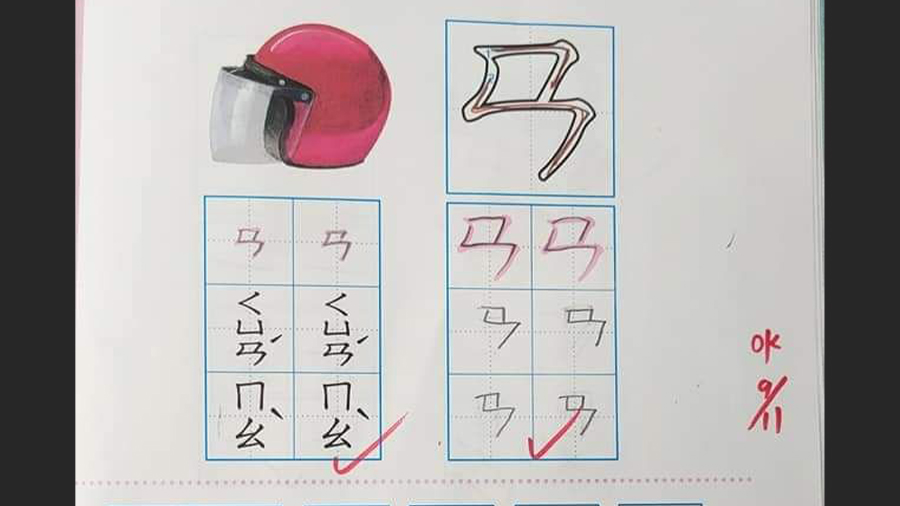 ㄢ
ㄢ ㄢ
ㄑㄩㄢˊ ㄑㄩㄢˊ
ㄇㄠˋ ㄇㄠˋ
ㄢ ㄢ
ㄢ ㄢ
ㄢ ㄢ
OK
9/11